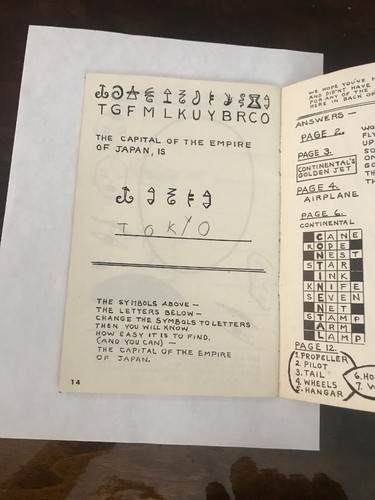 TGFMLKUYBRCO
THE CAPITAL OF THE EMPIRE
OF JAPAN, IS
TOKYO
THE SYMBOLS ABOVE —
THE LETTERS BELOW —
CHANGE THE SYMBOLS TO LETTERS
THEN YOU WILL KNOW
HOW EASY IT IS TO FIND,
(AND YOU CAN) —
THE CAPITAL OF THE EMPIRE
OF JAPAN.
14
WE HOPE YOU'VE
AND DIDN'T HAVE
FOR ANY OF THE
HERE IN BACK OF
ANSWERS —
PAGE 2.
PAGE 3.
CONTINENTAL'S
GOLDEN JET
PAGE 4.
AIRPLANE
PAGE 6.
CONTINENTAL
CANE
ROPE
NEST
STAR
INK
KNIFE
SEVEN
NET
STAMP
ARM
LAMP
PAGE 12.
1. PROPELLER
2. PILOT
3. TAIL
4. WHEELS
5. HANGAR